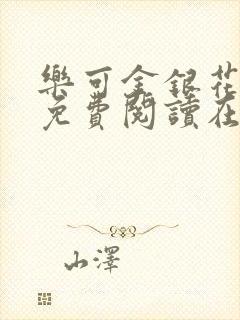 樂可金銀花
免費閱讀在
山澤